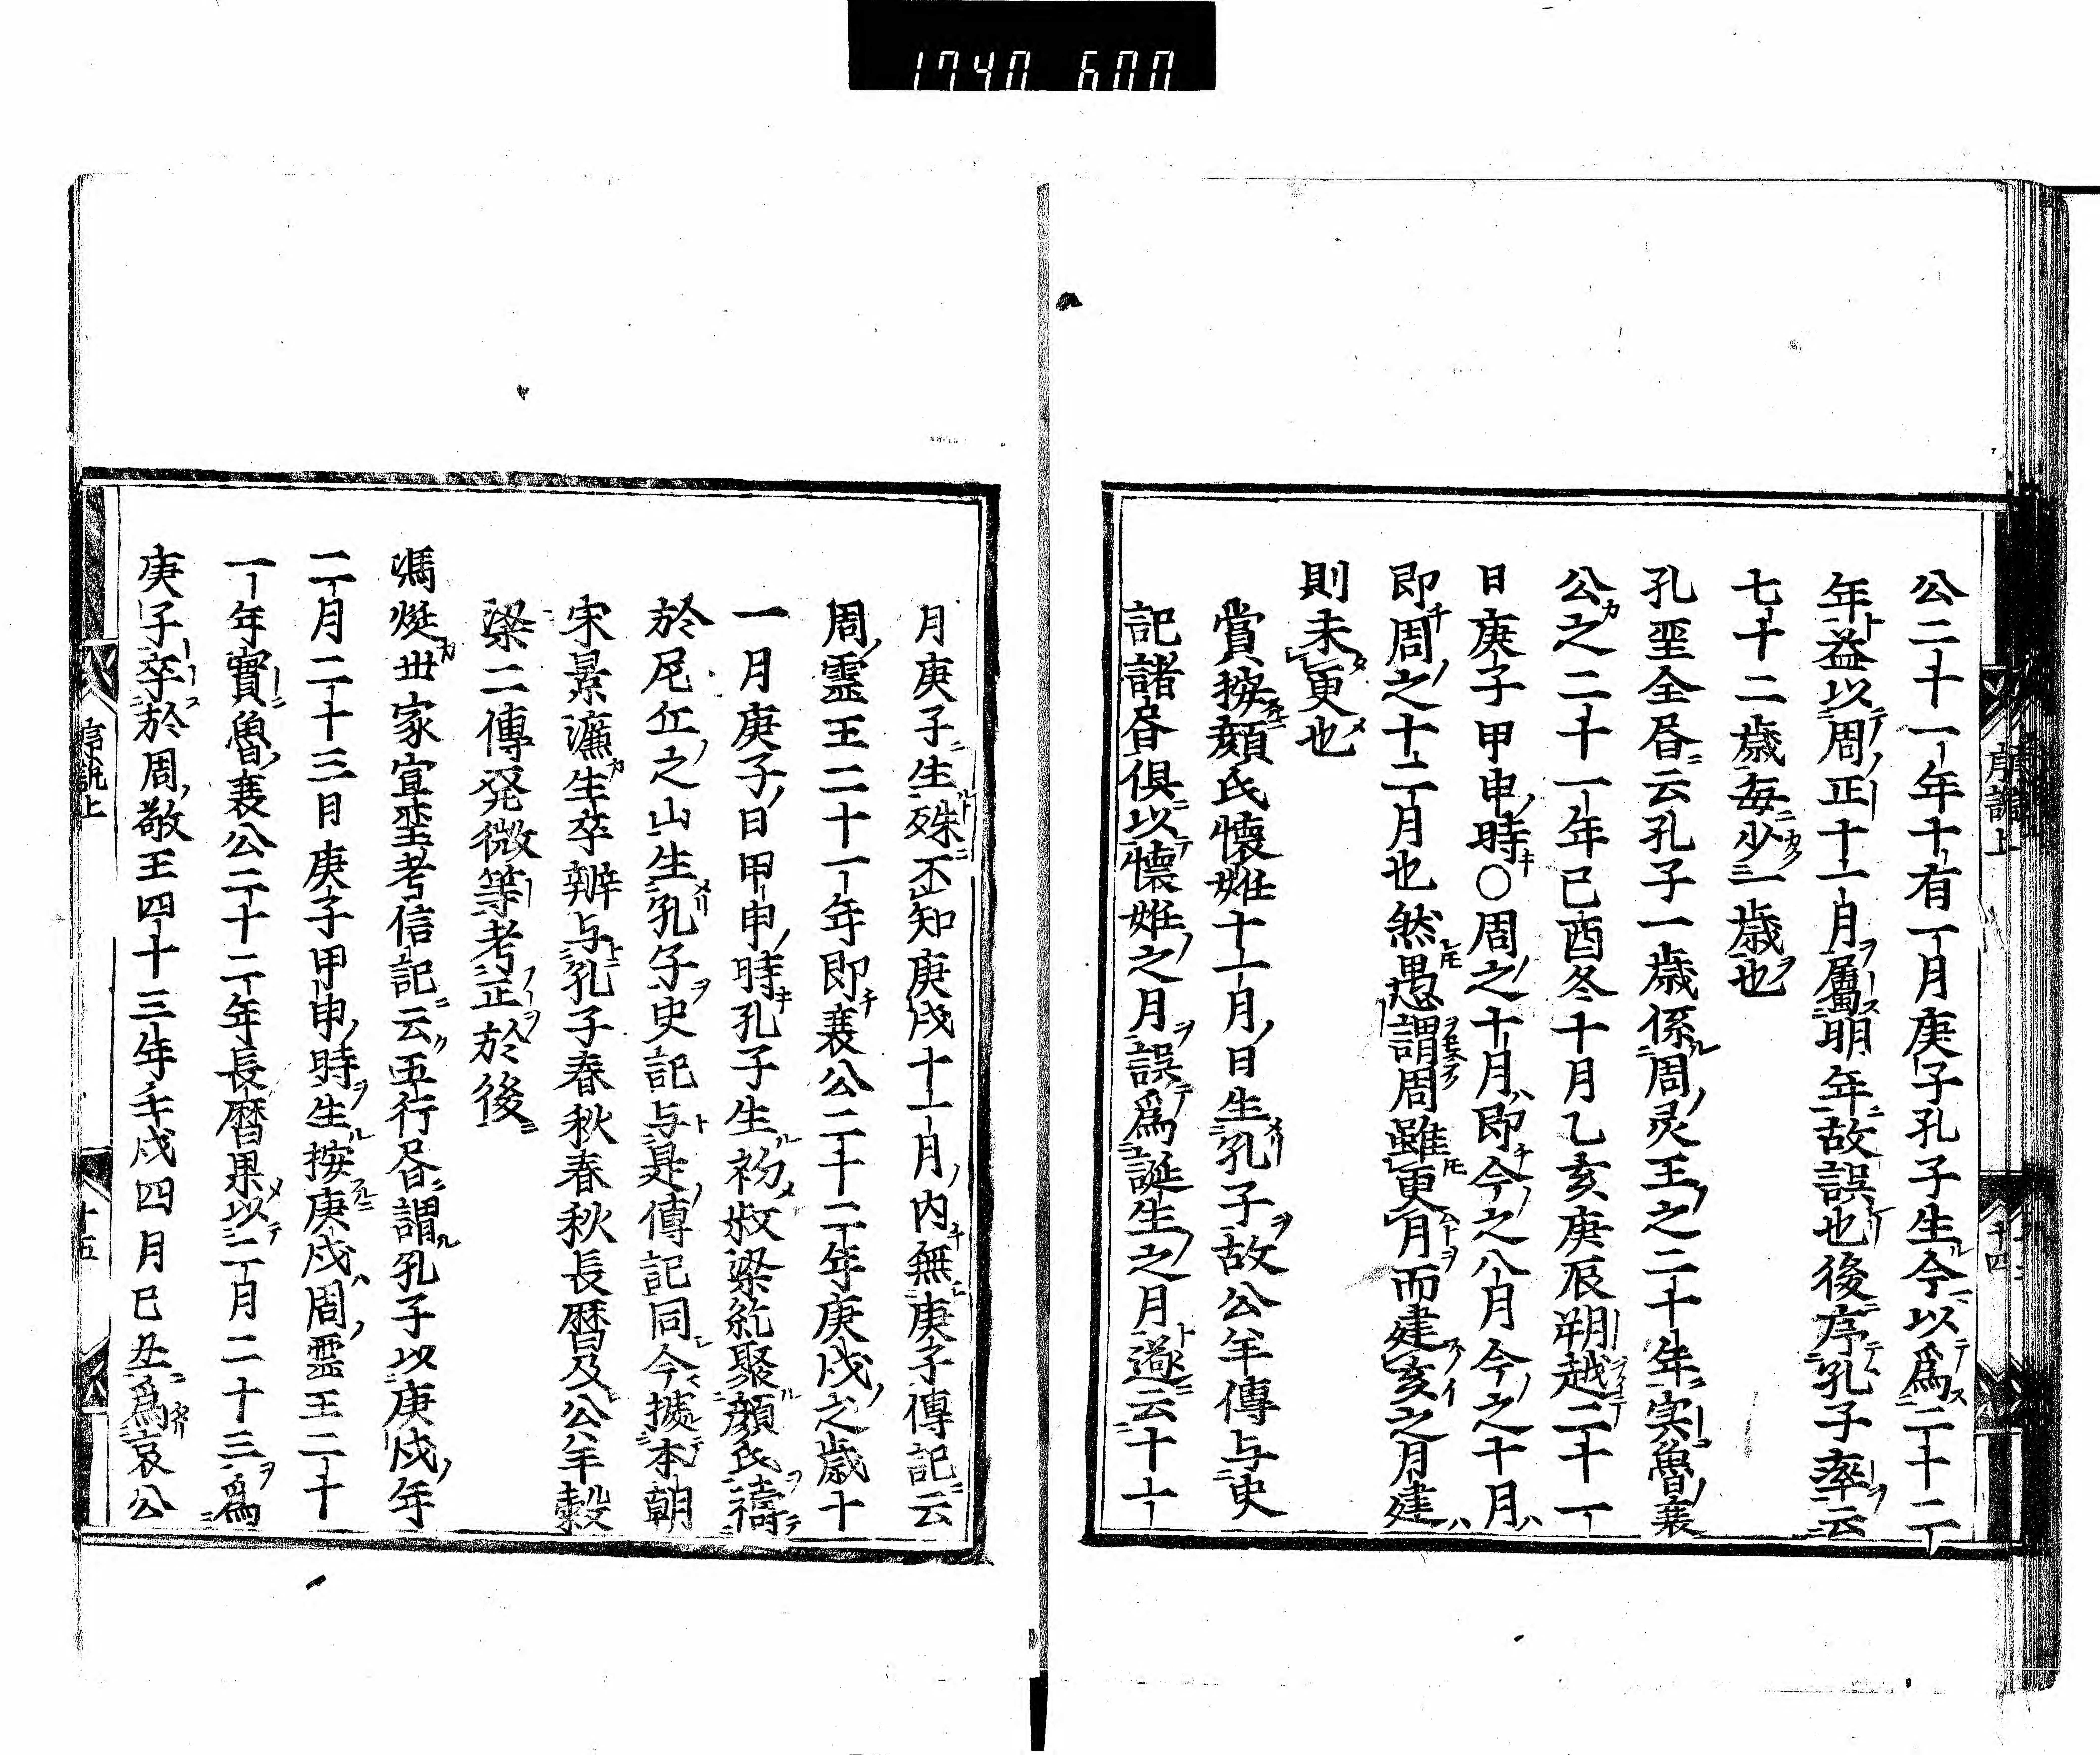 1740 600
公二十一年十有一月庚子孔子生今以爲二十二
年益以周正十一月屬明年故誤也後序孔子率云
七十二歳毎少一歳也
孔聖全昏云孔子一歳係周灵王之二十年実魯襄
公之二十一年己酉冬十月乙亥庚辰朔越二十一
日庚子甲申時○周之十月即今之八月今之十月
即周之十二月也然愚謂周雖更月而建亥之月建
則未更也
賞按顔氏懐姙十一月日生孔子故公羊傳与史
記諸昏俱以懐姙之月誤爲誕生之月遂云十一
序説上
十四
月庚子生殊不知庚戌十一月内無庚子傳記云
周靈王二十一年即襄公二十二年庚戌之歳十
一月庚子日甲申時孔子生初叔梁紇聚顔氏禱
於尼丘之山生孔子史記与是傳記同今據本朝
宋景濂生卒辧与孔子春秋春秋長暦及公羊穀
梁二傳発微等考正於後
馮烶世家宣聖考信記云五行昏謂孔子以庚戌年
二月二十三日庚子甲申時生按庚戌周靈王二十
一年實魯襄公二十二年長暦果以二月二十三爲
庚子卒於周敬王四十三年壬戌四月己丑爲哀公
序説上
十五